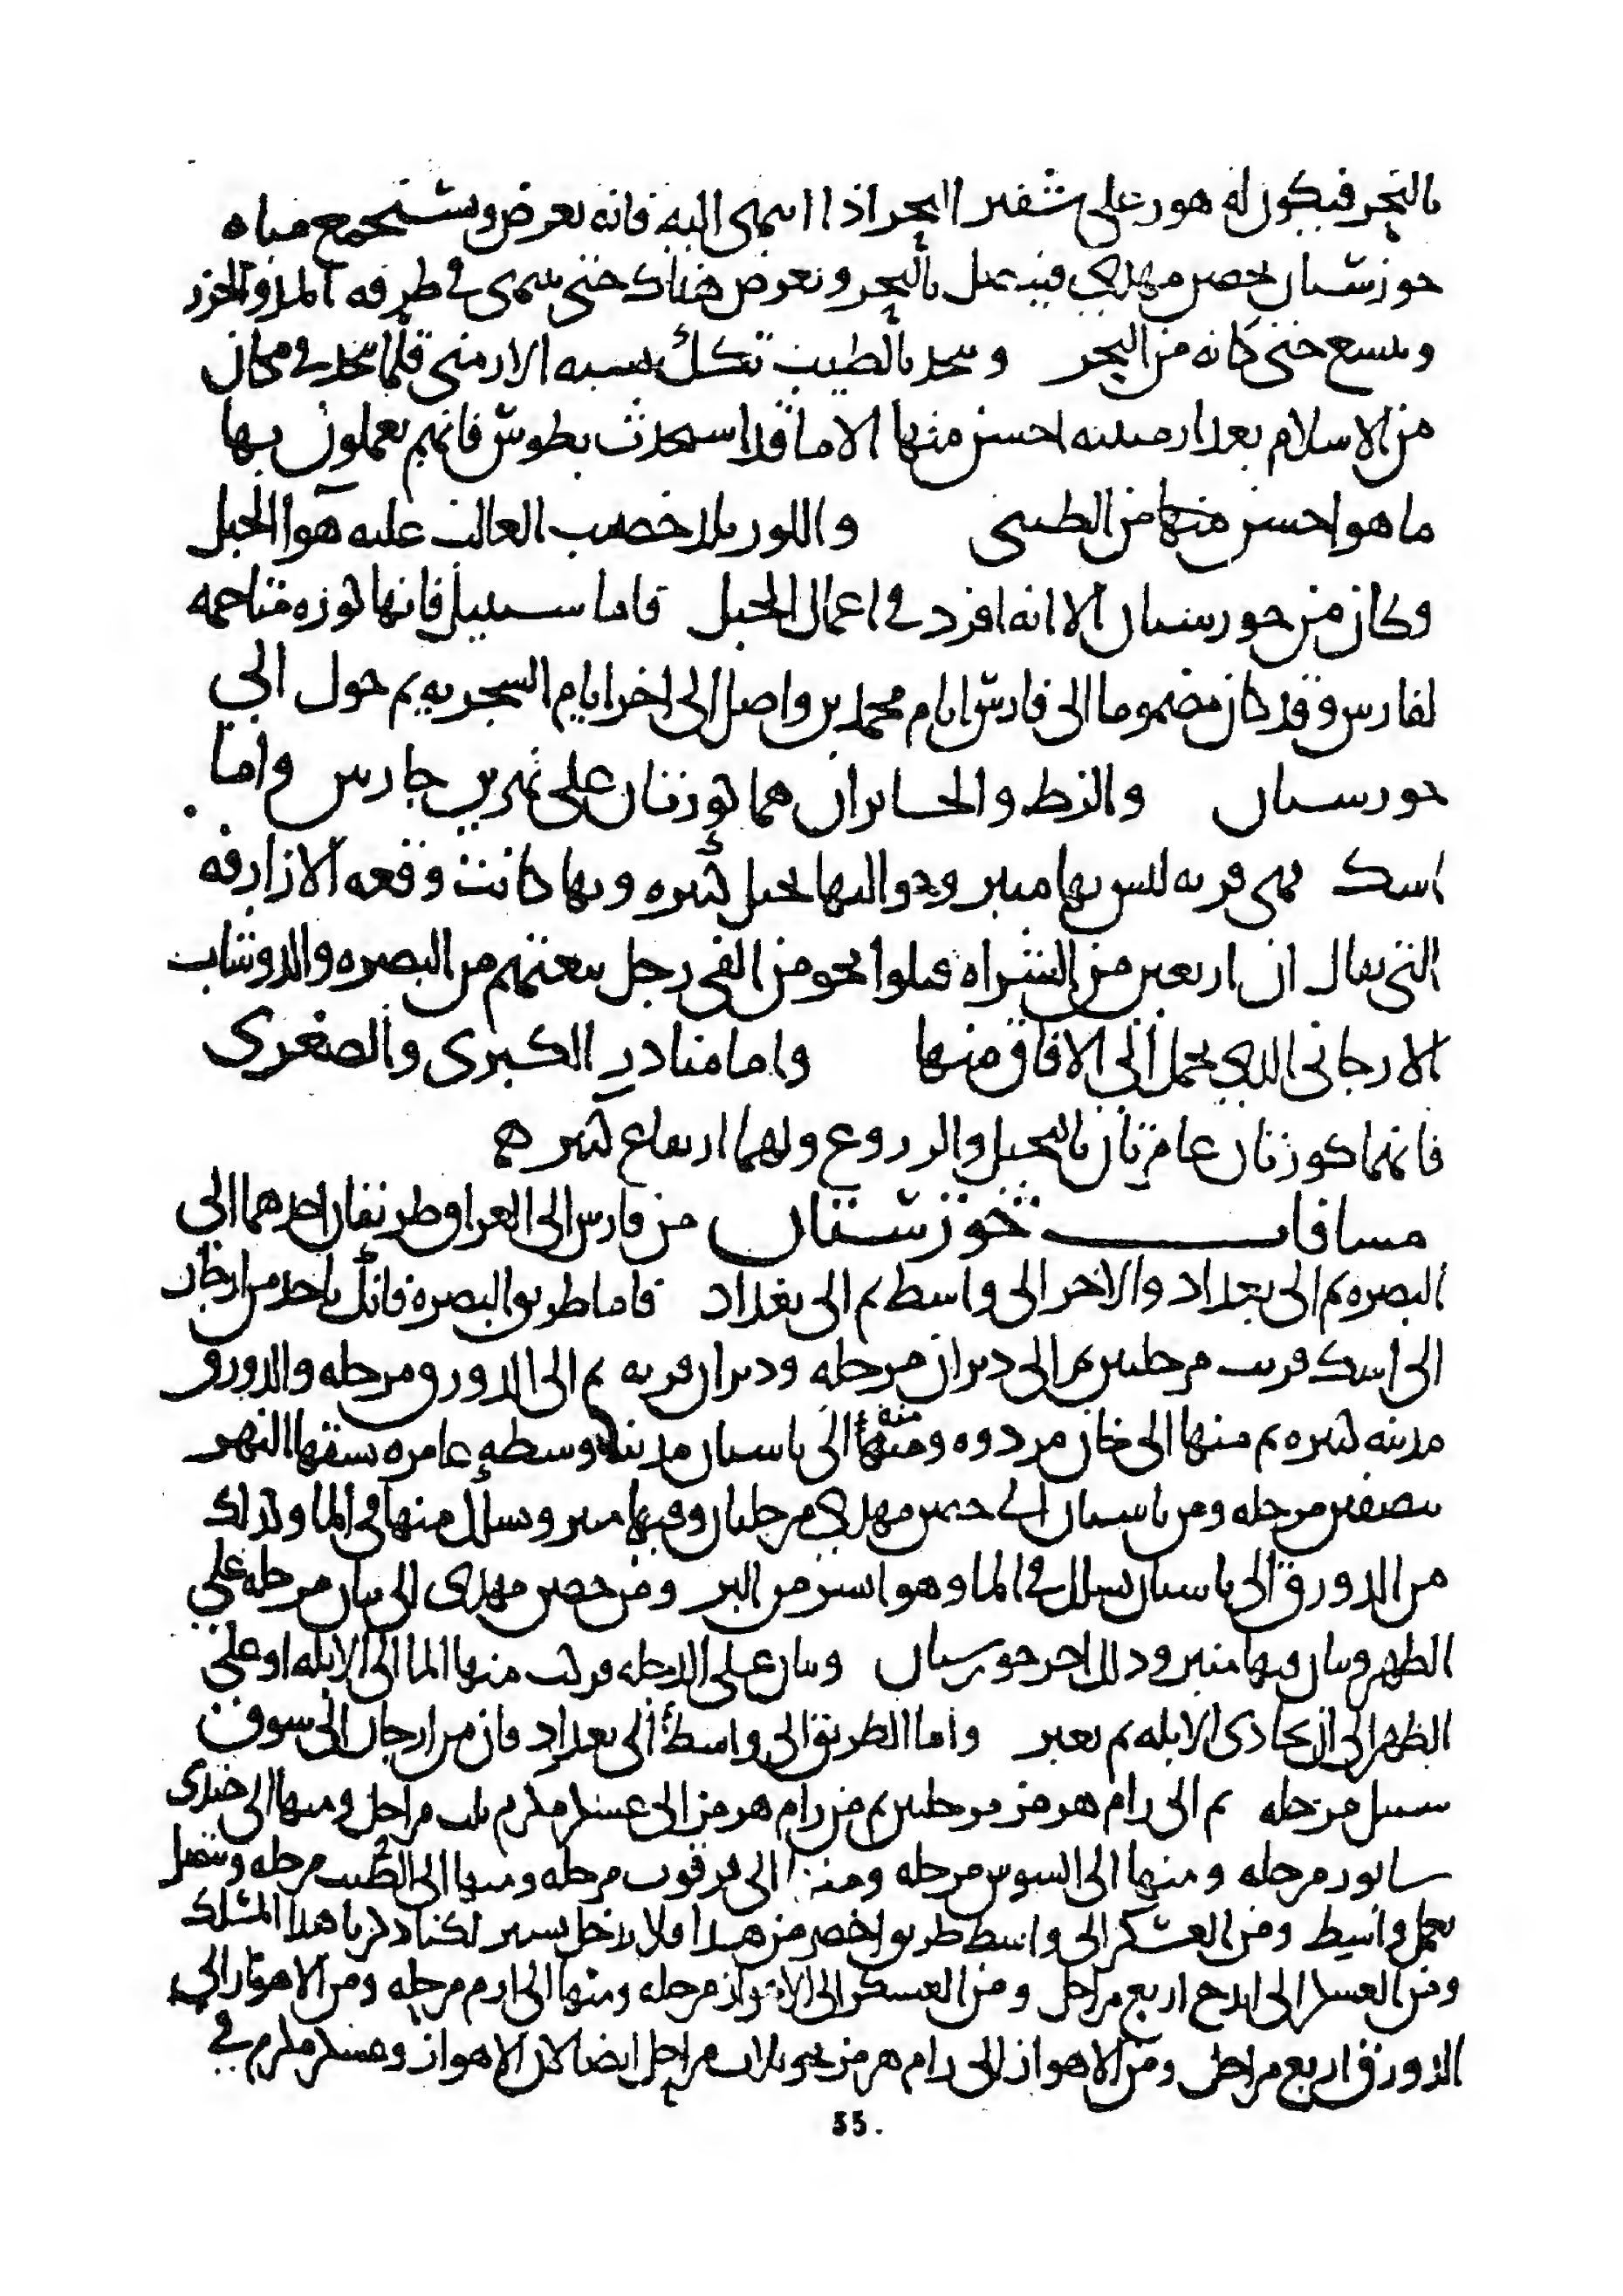 بالبحر فيكون له هور على شفير البحر اذا انتهى اليه فانه يعرض وتستجمع مياه
خوزستان بحصن مهدي فيتصل بالبحر ويعرض هناك حتى ينتهى في طرفه المد والجزر
ويتسع حتى كانه من البحر ويتخذ بالطيب تكك تشبه الارمنى قلما يتخذ في مكان
من الاسلام بعد ارمينيه احسن منها الا ما قد استحدث بطوس فانهم يعملون بها
ما هو احسن منها من الطيبى واللور بلد خصيب الغالب عليه هوا الجبل
وكان من خوزستان الا انه افرد في اعمال الجبل فاما سنبيل فانها كوره متاخمه
لفارس وقد كان مضموما الى فارس ايام محمد بن واصل الى اخر ايام السجزيه ثم حول الى
خوزستان والزط والخابران هما كورتان على نهرين جاريين واما
اسك فهى قريه ليس بها منبر وحواليها نخيل كثيره وبها كانت وقعه الازارقه
التى يقال ان اربعين من الشراه قتلوا نحو من الفى رجل تبعتهم من البصره والدوشاب
الارجانى الذي يحمل الى الافاق منها واما مناذر الكبرى والصغرى
فانهما كورتان عامرتان بالنخيل والزروع ولهما ارتفاع كثير ه
مسافات خوزستان من فارس الى العراق طريقان احدهما الى
البصره ثم الى بغداد والاخر الى واسط ثم الى بغداد فاما طريق البصره فانك تاخذ من ارجان
الى اسك قريب مرحلتين ثم الى ديران مرحله وديران قريه ثم الى الدورق مرحله والدورق
مدينه كبيره ثم منها الى خان مردوه ومنه الى باسيان مدينه وسطه عامره يشقها النهر
نصفين مرحله ومن باسيان الى حصن مهدي مرحلتان وفيها منبر ويسلك منها في الماء وكذلك
من الدورق الى باسيان يسلك في الماء وهو ايسر من البر ومن حصن مهدى الى بيان مرحله على
الظهر وبيان فيها منبر وذلك اخر خوزستان وبيان على الدجله فركب منها الما الى الابله او على
الظهر الى ان يحاذى الابله ثم يعبر واما الطريق الى واسط الى بغداد فان من ارجان الى سوق
سنبيل مرحله ثم الى رام هرمز مرحلتين ثم من رام هرمز الى عسكر مكرم ثلث مراحل ومنها الى جندى
سابور مرحله ومنها الى السوس مرحله ومنها الى قرقوب مرحله ومنها الى الطيب مرحله ويتصل
بعمل واسط ومن العسكر الى واسط طريق اخصر من هذا فلا يدخل تستر لكنا ذكرنا هذا المسلك
ومن العسكر الى ايذج اربع مراحل ومن العسكر الى الاهواز مرحله ومنها الى ازم مرحله ومن الاهواز الى
الدورق اربع مراحل ومن الاهواز الى رام هرمز نحو ثلاث مراحل ايضا لان الاهواز وعسكر مكرم في
55.